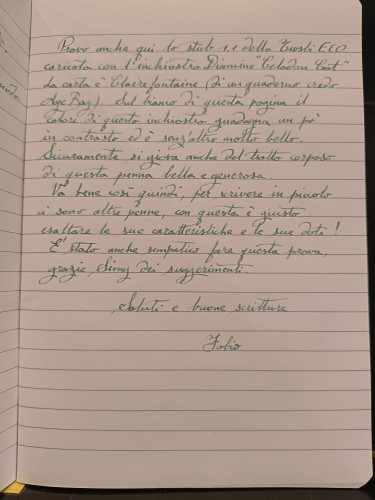 Provo anche qui lo stub 1.1 della Twsbi ECO
caricata con l'inchiostro Diamine "Celadon Cat"
la carta è Clairefontaine (di un quaderno credo
Age Bag) Sul bianco di questa pagina il
colore di questo inchiostro guadagna un po'
in contrasto ed è senz'altro molto bello.
Sicuramente si giova anche del tratto corposo
di questa penna bella e generosa.
Va bene così quindi, per scrivere in piccolo
ci sono altre penne, con questa è giusto
esaltare le sue caratteristiche e le sue doti!
E' stato anche simpatico fare questa prova,
grazie, dei suggerimenti.
Saluti e buone scritture
Fabio